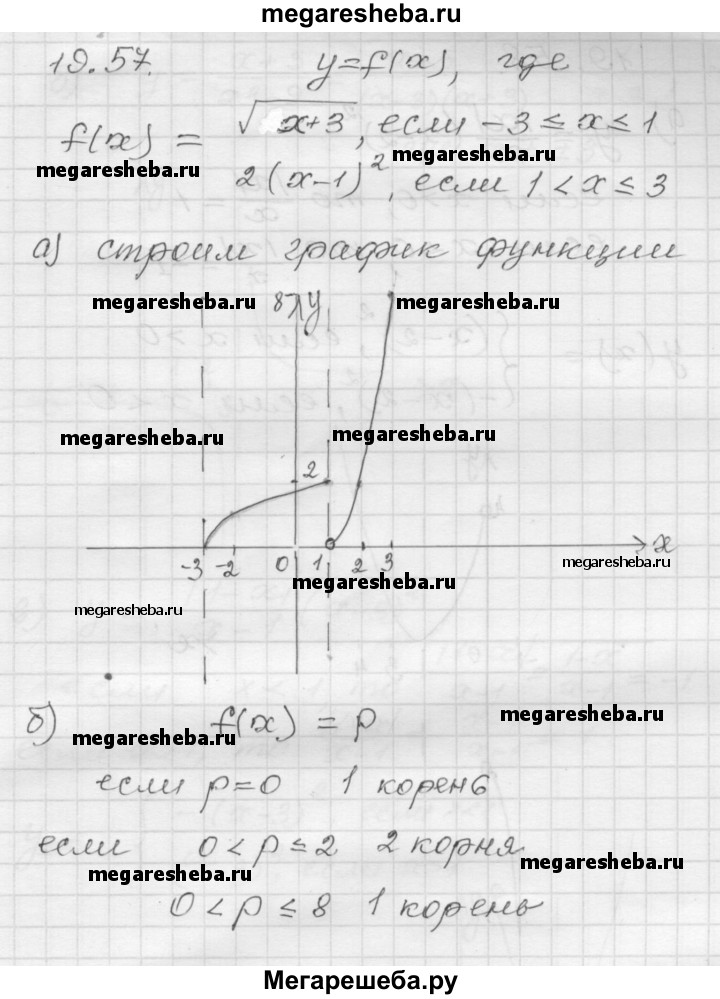 megaresheba.ru
19.57. y=f(x), где
f(x) = √x+3, если -3≤x≤1
megaresheba.ru megaresheba.ru
2(x-1)², если 1<x≤3
а) строим график функции
8 y
megaresheba.ru megaresheba.ru
megaresheba.ru megaresheba.ru
2
-3 -2 0 1 2 3 x
megaresheba.ru megaresheba.ru
megaresheba.ru
б) f(x) = p
megaresheba.ru megaresheba.ru
если p=0 1 корень
если 0<p≤2 2 корня
megaresheba.ru megaresheba.ru
0<p≤8 1 корень
Мегарешеба.ру